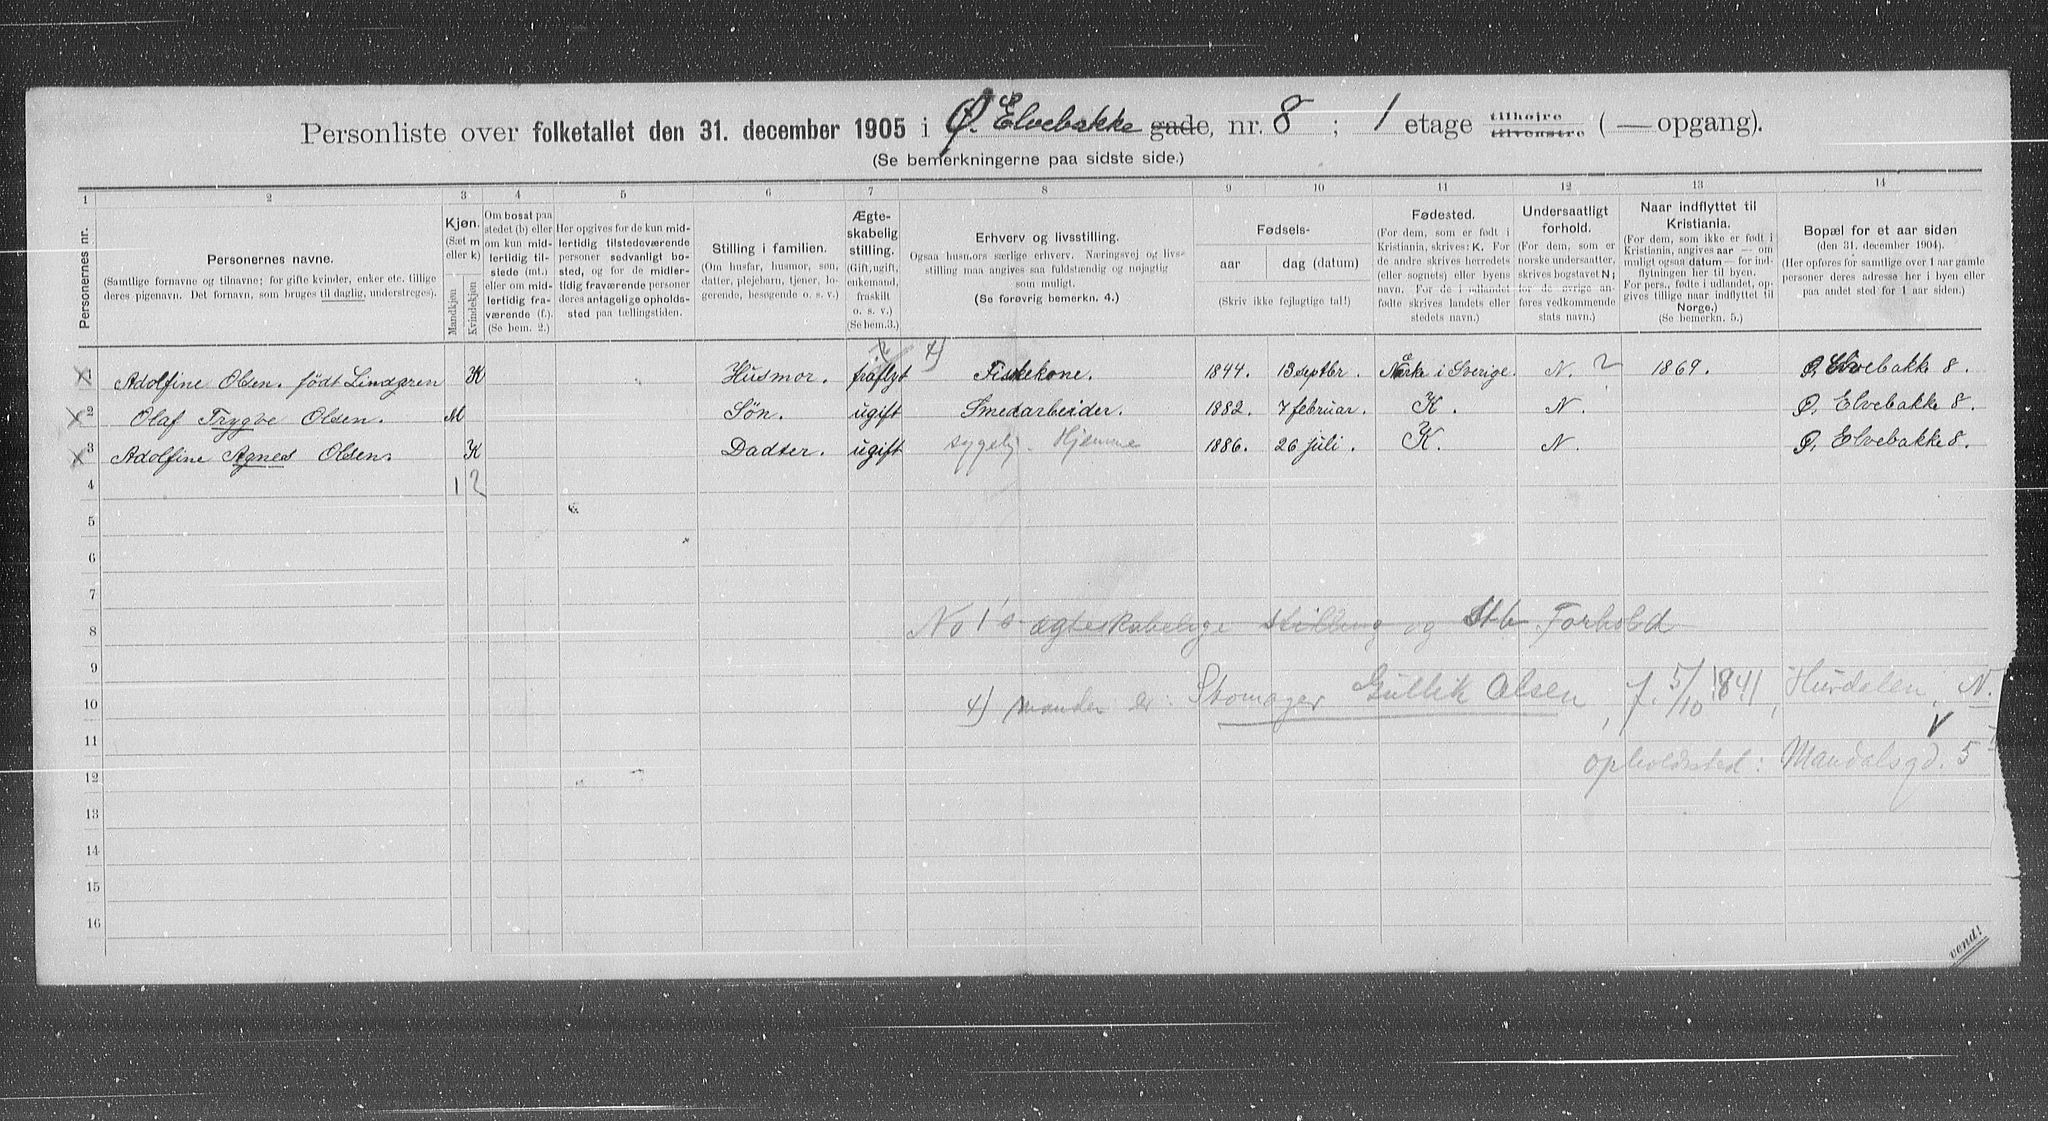 Personliste over folketallet den 31. december 1905 i Ø. Elvebakke gade, nr. 8 ; 1 etage tilhøjre tilvenstre ( — opgang).
(Se bemerkningerne paa sidste side.)
1 2 3 4 5 6 7 8 9 10 11 12 13 14
Personernes nr.
Personernes navne.
(Samtlige fornavne og tilnavne; for gifte kvinder, enker etc. tillige
deres pigenavn. Det fornavn, som bruges til daglig, understreges).
Kjøn.
(Sæt m
eller k)
Mandkjøn
Kvindekjøn
Om bosat paa
stedet (b) eller
om kun mid-
lertidig til-
stede (mt.)
eller om mid-
lertidig fra-
værende (f.).
(Se bem. 2.)
Her opgives for de kun mid-
lertidig tilstedeværende
personer sedvanligt bo-
sted, og for de midler-
tidig fraværende personer
deres antagelige opholds-
sted paa tællingstiden.
Stilling i familien.
(Om husfar, husmor, søn,
datter, plejebarn, tjener, lo-
gerende, besøgende o. s. v.)
Ægte-
skabelig
stilling.
(Gift, ugift,
enkemand,
fraskilt
o. s. v.)
(Se bem.3.)
Erhverv og livsstilling.
Ogsaa husmors særlige erhverv. Næringsvej og livs-
stilling maa angives saa fuldstændig og nøjagtig
som muligt.
(Se forøvrig bemerkn. 4.)
Fødsels-
aar
dag (datum)
(Skriv ikke fejlagtige tal!)
Fødested.
(For dem, som er født i
Kristiania, skrives: K. For
de andre skrives herredets
(eller sognets) eller byens
navn. For de i udlandet
fødte skrives landets eller
stedets navn.)
Undersaatligt
forhold.
(For dem, som er
norske undersaatter,
skrives bogstavet N;
for de øvrige an-
føres vedkommende
stats navn.)
Naar indflyttet til
Kristiania.
(For dem, som ikke er født i
Kristiania, angives aar — om
muligt saavel datum — for ind-
flytningen her til byen.
For pers., fødte i udlandet, op-
gives tillige naar indflyttet til
Norge.)
(Se bemerkn. 5.)
Bopæl for et aar siden
(den 31. december 1904).
(Her opføres for samtlige over 1 aar gamle
personer deres adresse her i byen eller
paa andet sted for 1 aar siden.)
1 Adolfine Olsen. født Lindgren K Husmor. fraflyt 4) Fiskekone. 1844. 13 septbr. Närke i Sverige. N. ? 1869. Ø. Elvebakke 8.
2 Olaf Trygve Olsen. M Søn. ugift Smedarbeider. 1882. 7 februar. K. N. Ø. Elvebakke 8.
3 Adolfine Agnes Olsen. K Dadter. ugift sygelig. Hjemme 1886. 26 juli. K. N. Ø. Elvebakke 8.
4 1 2
5
6
7
8 No 1's ægteskabelige stilling og Stb. Forhold
9
10 4) manden er: Skomager Gullik Olsen, f. 5/10 1841, Hurdalen, N.
11
12 opholdssted: Mandalsgd. 5
13
14
15
16
vend!